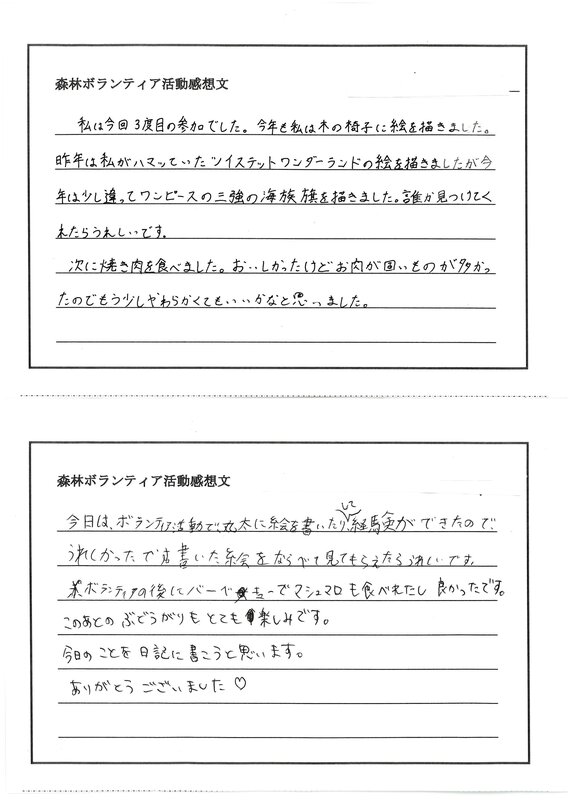 森林ボランティア活動感想文
私は今回3度目の参加でした。今年も私は木の椅子に絵を描きました。
昨年は私がハマッていたツイステットワンダーランドの絵を描きましたが今
年は少し違ってワンピースの三強の海族旗を描きました。誰か見つけてく
れたらうれしいです。
次に焼き肉を食べました。おいしかったけどお肉が固いものが多かっ
たのでもう少しやわらかくてもいいかなと思いました。
森林ボランティア活動感想文
今日は、ボランティア活動で、丸太に絵を書いたりして経験ができたので、
うれしかったです書いた絵をならべて見てもらえたらうれいです。
ボランティアの後にバーベキューでマシュマロも食べれたし 良かったです。
このあとの ぶどうがりも とても楽しみです。
今日の ことを 日記に 書こうと 思います。
ありがとう ございました♡